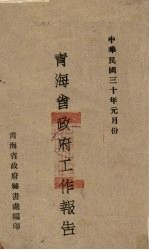 中華民國三十年元月份
青海省政府工作報告
青海省政府祕書處編印